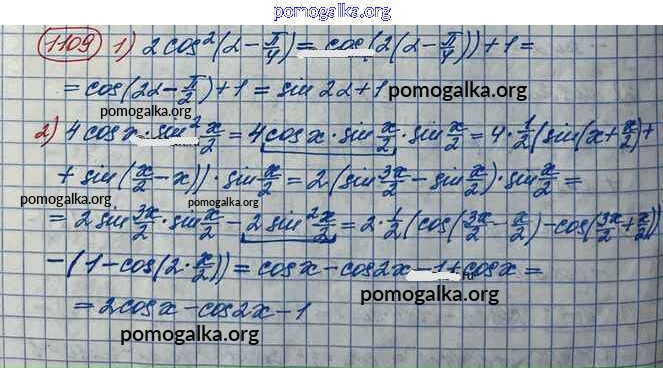 pomogalka.org
1109 1) 2cos²(α - π/4) = cos(2(α - π/4)) + 1 =
= cos(2α - π/2) + 1 = sin 2α + 1 pomogalka.org
pomogalka.org
2) 4cosx · sin² x/2 = 4cosx · sin x/2 · sin x/2 = 4 · 1/2 (sin(x + x/2) +
+ sin(x/2 - x)) · sin x/2 = 2 · (sin 3x/2 - sin x/2) · sin x/2 =
pomogalka.org
pomogalka.org
= 2 sin 3x/2 · sin x/2 - 2 sin² x/2 = 2 · 1/2 (cos(3x/2 - x/2) - cos(3x/2 + x/2))
- (1 - cos(2 · x/2)) = cosx - cos2x - 1 + cosx =
pomogalka.org
= 2cosx - cos2x - 1
pomogalka.org